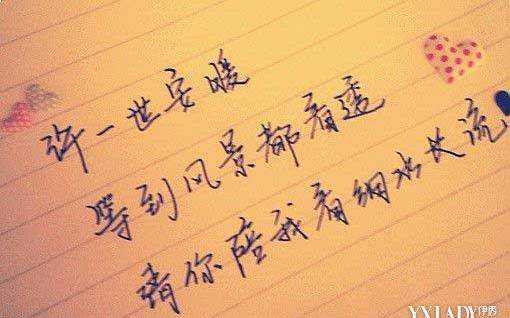 许一世安暖
等到风景都看透
请你陪我看细水长流
YXLADY伊秀